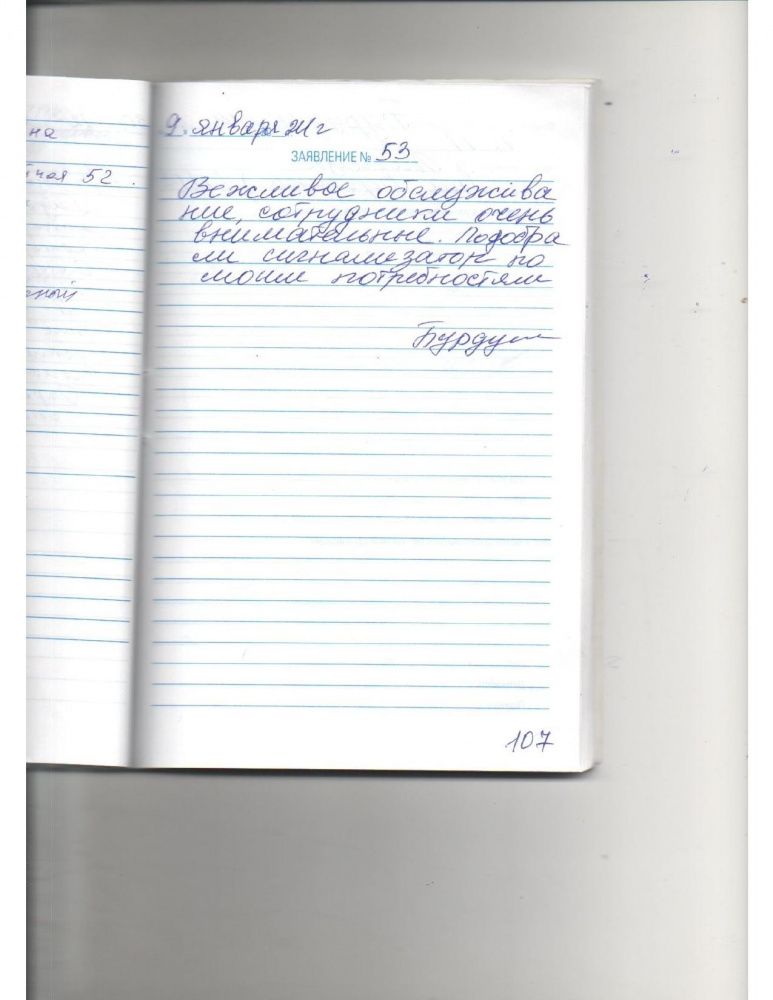 на
ная 52.
9 января 21 г
ЗАЯВЛЕНИЕ № 53
Вежливое обслужива
ние, сотрудники очень
внимательные. Подобра
ли сигнализатор по
моим потребностям
107